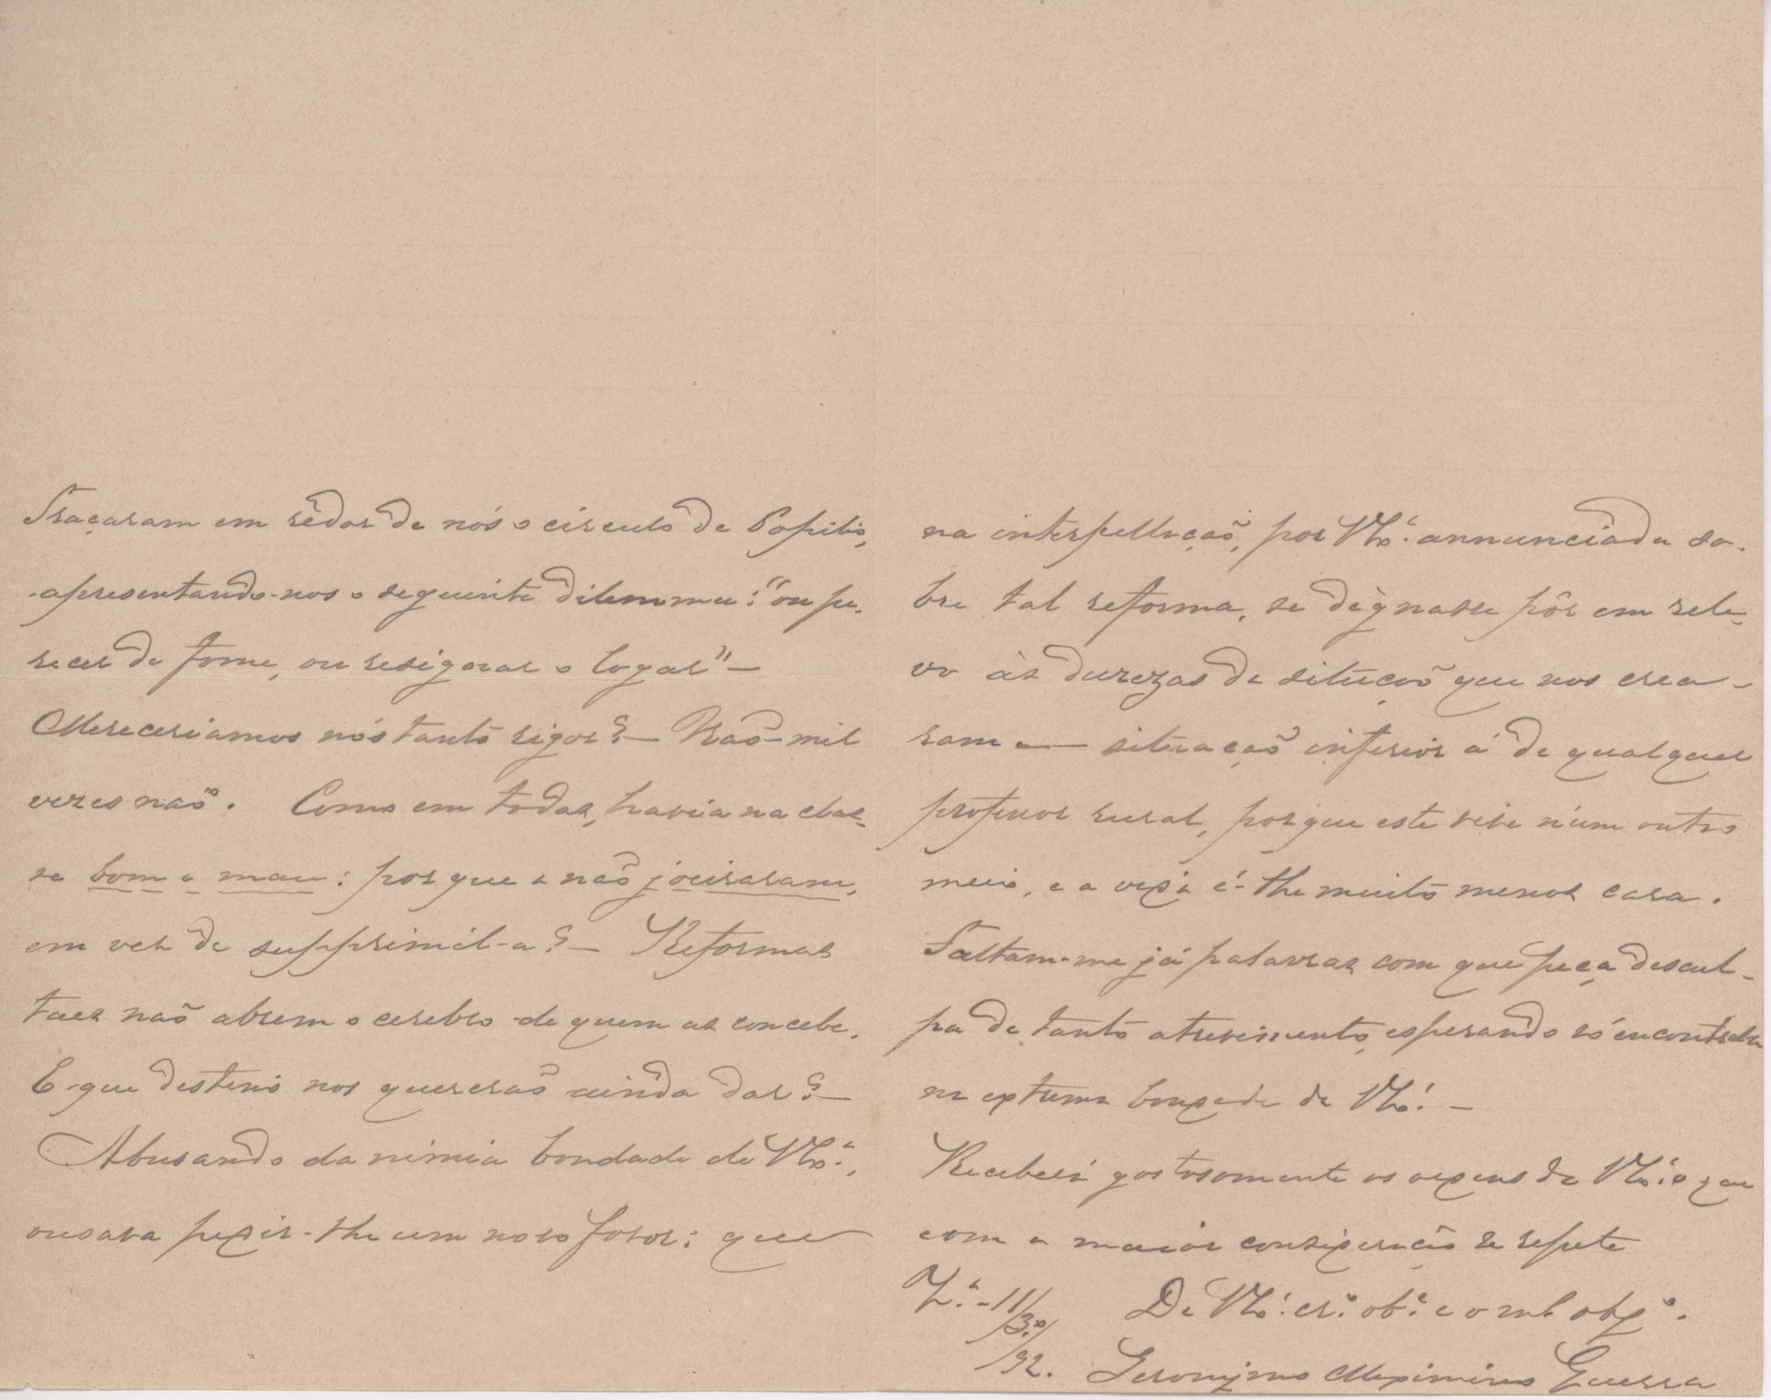 Traçaram em rêdor de nós o circulo de Popilio,
apresentando-nos o seguinte dilemma: "ou pe-
recer de fome, ou resignar o logar" —
Mereceriamos nós tanto rigor? — Não — mil
vezes não. Como em todas, havia na clas-
se bom e mau: por que a não joeiraram,
em vez de supprimil-a? — Reformas
taes não abrem o cerebro de quem as concebe.
E que destino nos quererão ainda dar? —
Abusando da nimia bondade de V Ex.ª,
ousava pedir-lhe um novo favor: que
na interpellação, por V Ex.ª annunciada so-
bre tal reforma, se dignasse pôr em rele-
vo ás durezas da situação que nos crea-
ram — situação inferior á de qualquer
professor rural, porque este vive n'um outro
meio, e a vida é-lhe muito menos cara.
Faltam-me já palavras com que peça descul-
pa de tanto atrevimento, esperando só encontral-a
na extrema bondade de V Ex.ª —
Receberá gostosamente as ordens de V Ex.ª o que
com a maior consideração se repete
11/3º/92.
De V Ex.ª cr.º ob.º e
Jeronymo Maximino Guerra